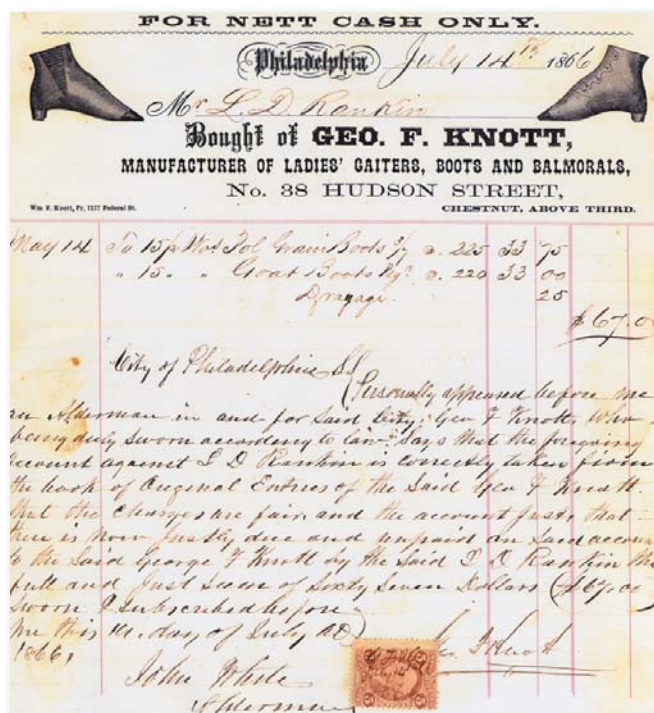 FOR NETT CASH ONLY.
Philadelphia July 14th 1866
Mr L. D. Rankin
Bought of GEO. F. KNOTT,
MANUFACTURER OF LADIES' GAITERS, BOOTS AND BALMORALS,
No. 38 HUDSON STREET,
Wm F. Knott, Pr. 1137 Federal St. CHESTNUT, ABOVE THIRD.
May 14 To 15 Grain Boots 225 33 75
" 15 " " Goat Boots 220 33 00
Drayage 25
$67.0
City of Philadelphia SS
Personally appeared before me
an Alderman in and for Said City, Geo F Knott, Who
being duly sworn according to law says that the foregoing
account against L D Rankin is correctly taken from
the book of Original Entries of the Said Geo F Knott.
that the charges are fair and the account Just, that
there is now Justly due and unpaid on Said accou
to the Said George F Knott by the Said L D Rankin the
full and Just Sum of Sixty Seven Dollars ($67.00)
Sworn & subscribed before
me this 14. day of July AD
1866, Geo. F Knott
John White
Alderman